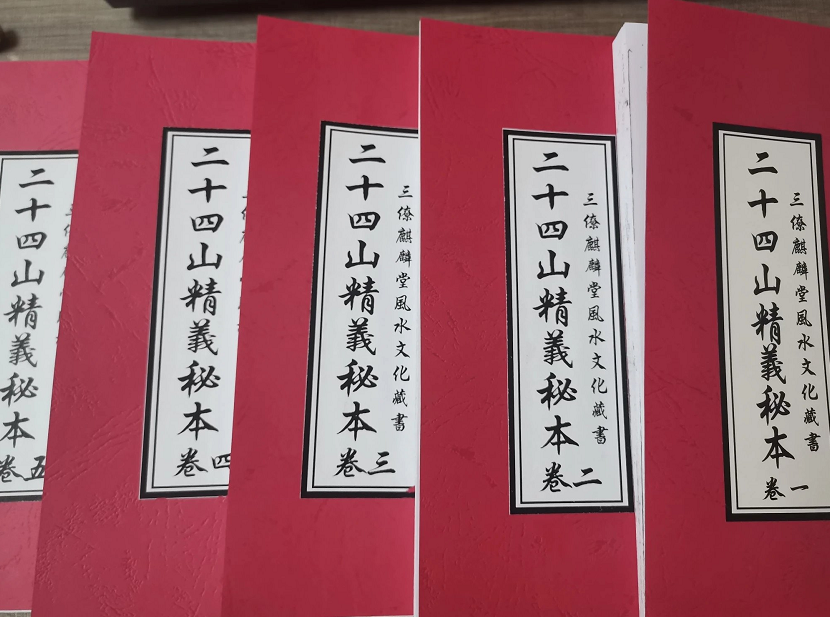 三僚麒麟堂風水文化藏書
二十四山精義秘本
卷一
三僚麒麟堂風水文化藏書
二十四山精義秘本
卷二
三僚麒麟堂風水文化藏書
二十四山精義秘本
卷三
二十四山精義秘本
卷四
二十四山精義秘本
卷五